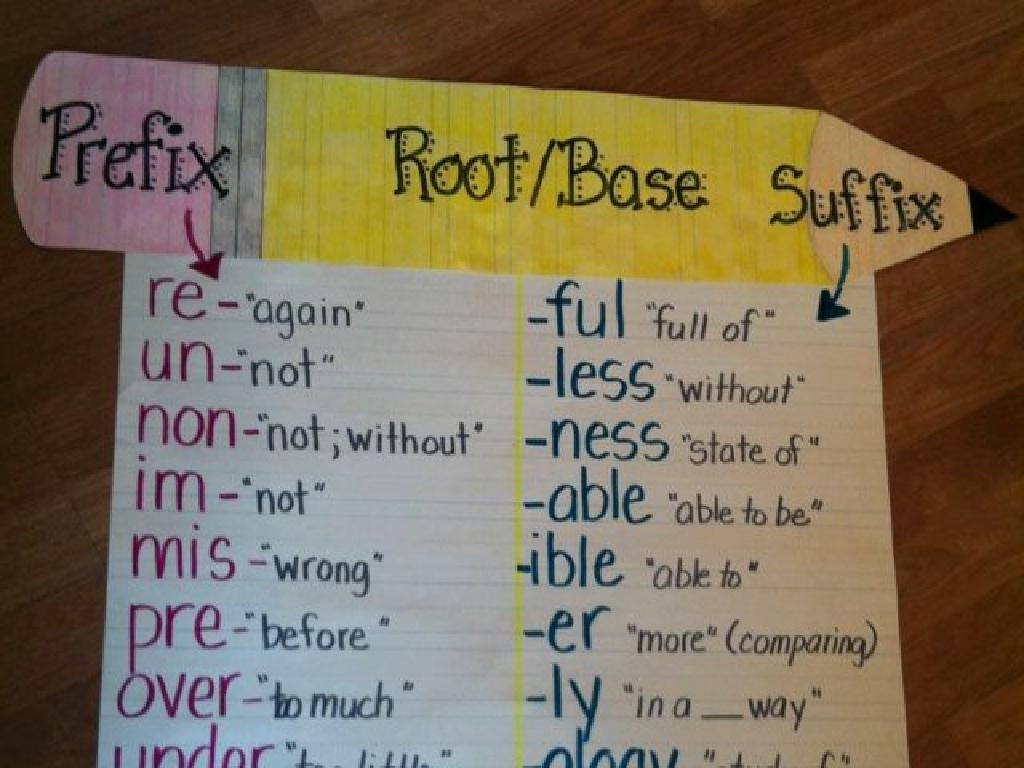 Prefix Root/Base Suffix
re - "again"
un - "not"
non - "not; without"
im - "not"
mis - "wrong"
pre - "before"
over - "too much"
under "too little"
-ful "full of"
-less "without"
-ness "state of"
-able "able to be"
-ible "able to"
-er "more" (comparing)
-ly "in a __ way"
-ology "study of"